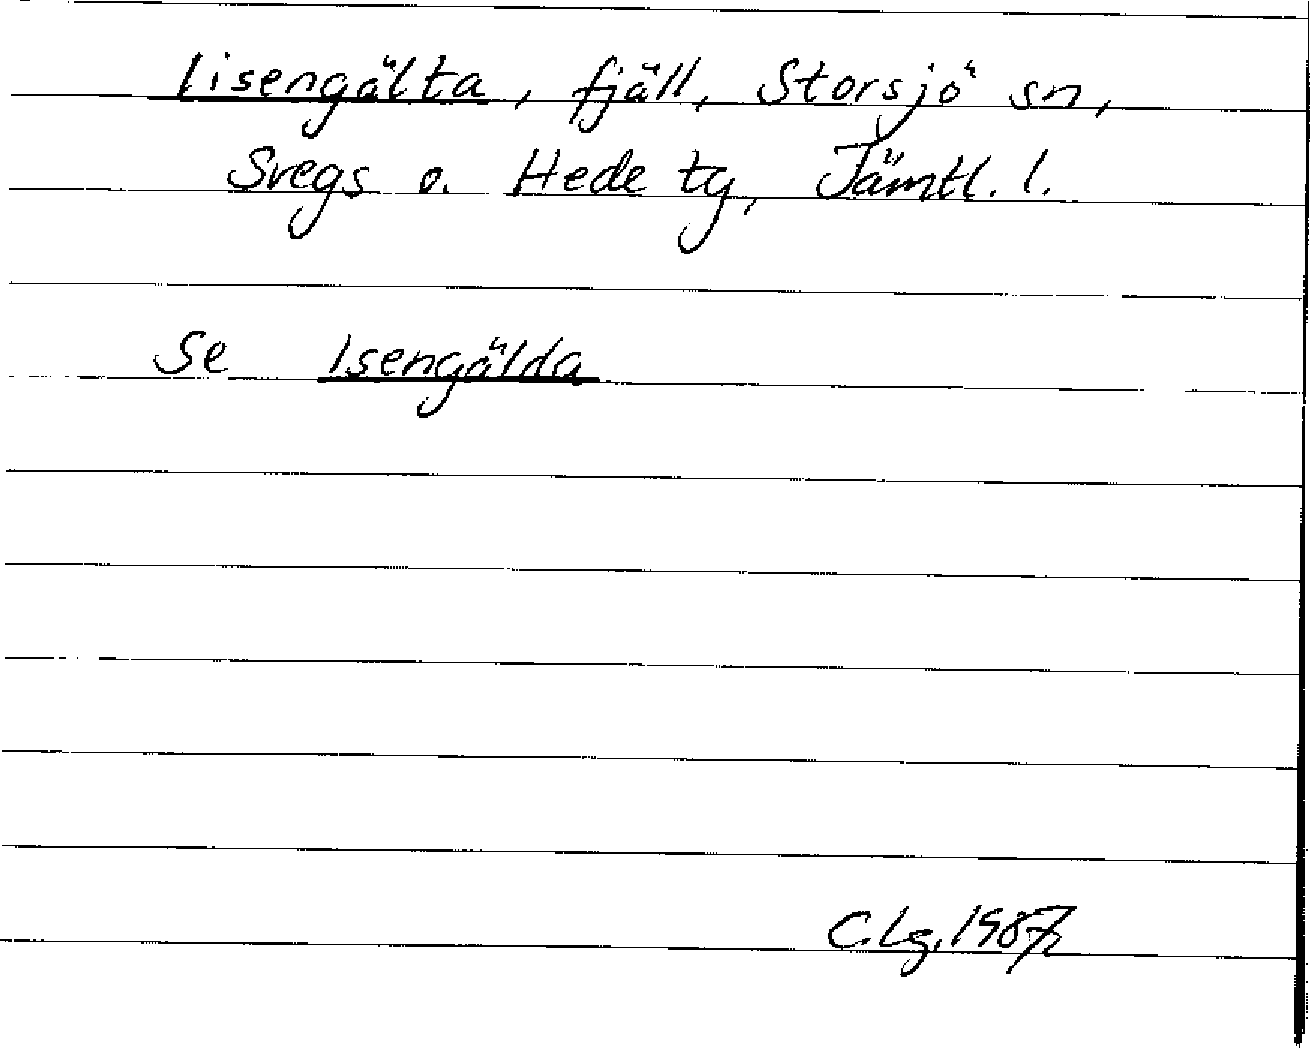 Iisengälta, fjäll, Storsjö sn,
Svegs o. Hede tg, Jämtl. l.
Se Isengälda
C.Lg. 1987